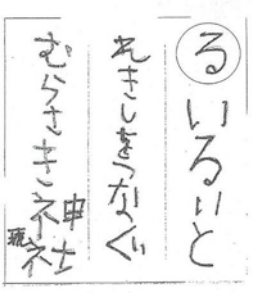 るいるいと
れきしをつなぐ
むらさき神社
琉